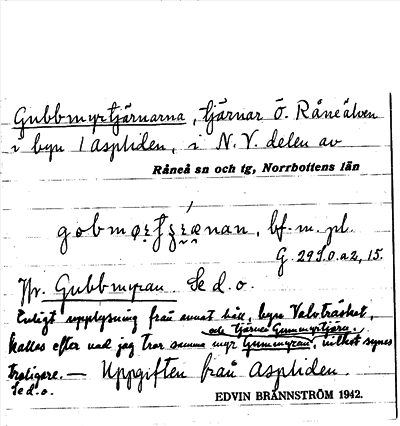 Gubbmyrtjärnarna, tjärnar Ö. Råneälven
i byn 1 Aspliden, i N.V. delen av
Råneå sn och tg, Norrbottens län
bf. m. pl.
G. 299.0.a2, 15.
Jfr. Gubbmyran. Se d.o.
Enligt upplysning från annat håll, byn Valvträsket,
och tjärnen Gummyrtjärn.
kallas efter vad jag tror samma myr Gummyran, vilket synes
troligare. — Uppgiften från Aspliden.
Se d.o.
EDVIN BRÄNNSTRÖM 1942.